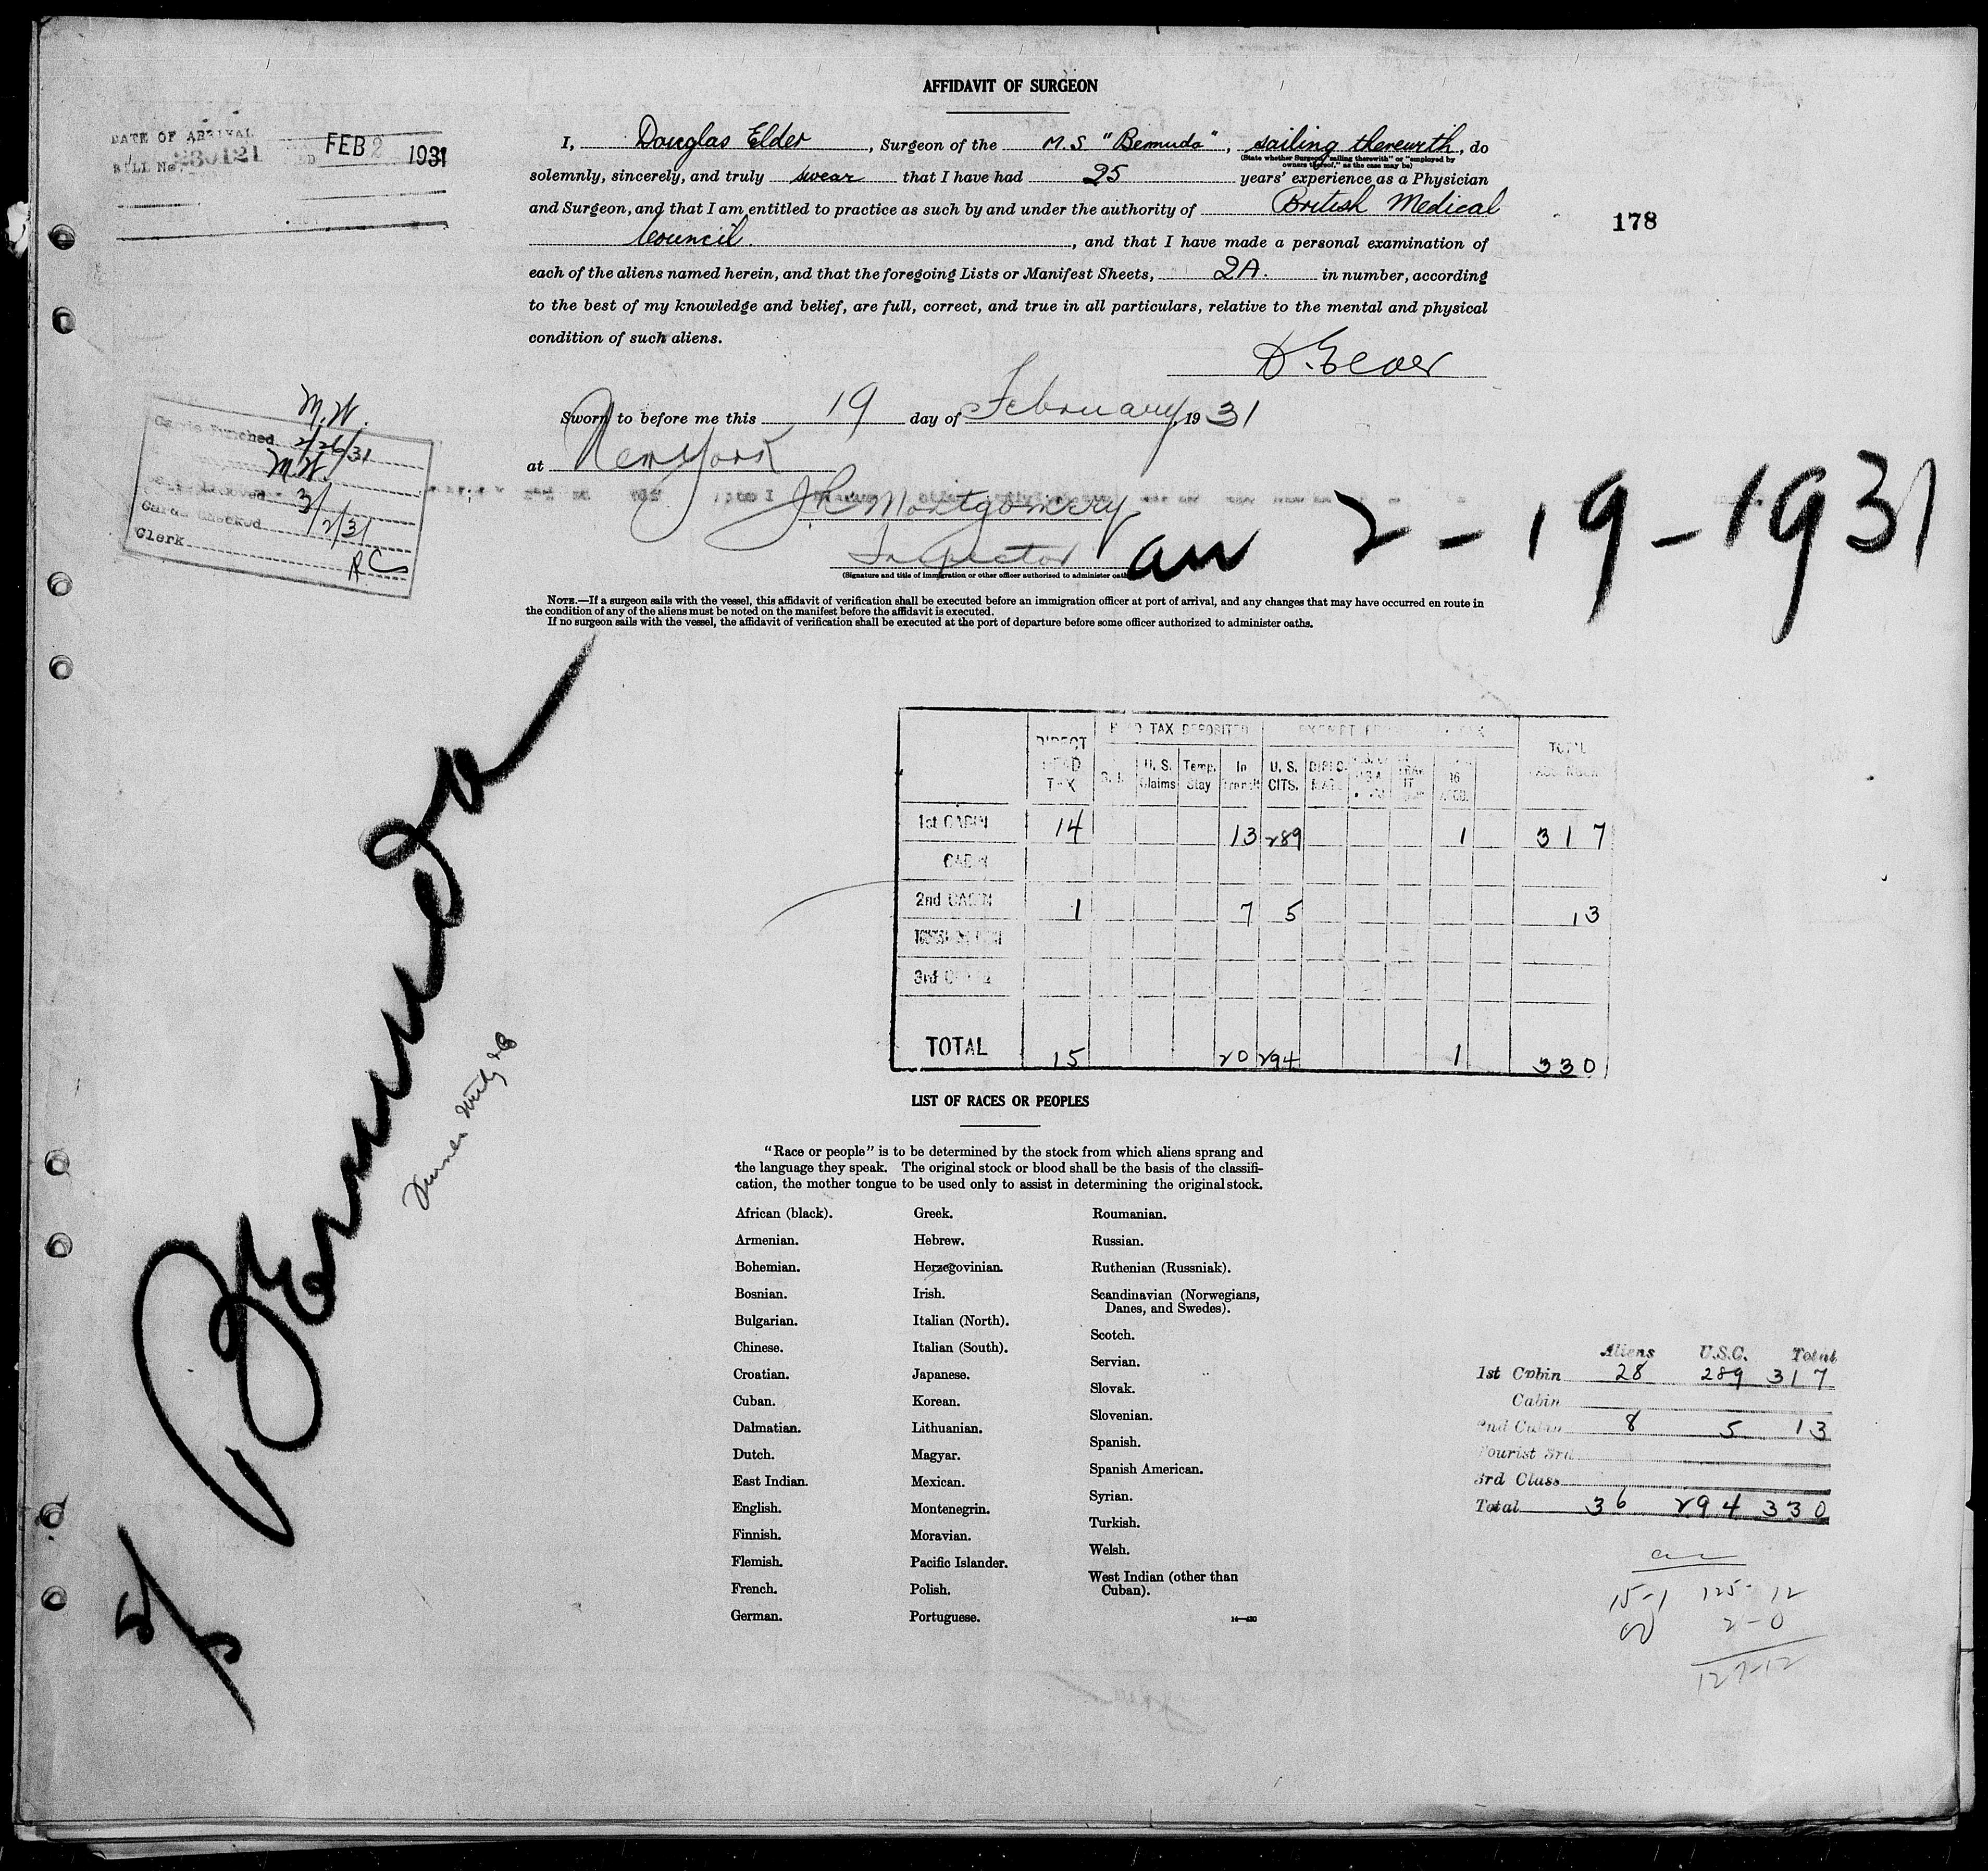 AFFIDAVIT OF SURGEON
DATE OF ARRIVAL
BILL No. 230121 FEB 2 1931
I, Douglas Elder, Surgeon of the M.S "Bermuda", sailing therewith, do
(State whether Surgeon "sailing therewith" or "employed by
owners thereof," as the case may be)
solemnly, sincerely, and truly swear that I have had 25 years' experience as a Physician
and Surgeon, and that I am entitled to practice as such by and under the authority of British Medical
Council., and that I have made a personal examination of
178
each of the aliens named herein, and that the foregoing Lists or Manifest Sheets, 2A. in number, according
to the best of my knowledge and belief, are full, correct, and true in all particulars, relative to the mental and physical
condition of such aliens.
D. Elder
Sworn to before me this 19 day of February, 1931
at New York
Montgomery
Inspector
(Signature and title of immigration or other officer authorized to administer oath
2-19-1931
M.W.
Cards Punched 2/26/31
M.W.
3/2/31
Cards Checked
Clerk RC
NOTE.—If a surgeon sails with the vessel, this affidavit of verification shall be executed before an immigration officer at port of arrival, and any changes that may have occurred en route in
the condition of any of the aliens must be noted on the manifest before the affidavit is executed.
If no surgeon sails with the vessel, the affidavit of verification shall be executed at the port of departure before some officer authorized to administer oaths.
Bermuda
DIRECT HEAD TAX TAX DEPOSITED EXEMPT TOTAL
U.S. Claims Temp. Stay In transit U.S. CITS. 16
1st CABIN 14 13 289 1 317
CABIN
2nd CABIN 1 7 5 13
3rd
TOTAL 15 20 294 1 330
LIST OF RACES OR PEOPLES
"Race or people" is to be determined by the stock from which aliens sprang and
the language they speak. The original stock or blood shall be the basis of the classifi-
cation, the mother tongue to be used only to assist in determining the original stock.
African (black).
Armenian.
Bohemian.
Bosnian.
Bulgarian.
Chinese.
Croatian.
Cuban.
Dalmatian.
Dutch.
East Indian.
English.
Finnish.
Flemish.
French.
German.
Greek.
Hebrew.
Herzegovinian.
Irish.
Italian (North).
Italian (South).
Japanese.
Korean.
Lithuanian.
Magyar.
Mexican.
Montenegrin.
Moravian.
Pacific Islander.
Polish.
Portuguese.
Roumanian.
Russian.
Ruthenian (Russniak).
Scandinavian (Norwegians,
Danes, and Swedes).
Scotch.
Servian.
Slovak.
Slovenian.
Spanish.
Spanish American.
Syrian.
Turkish.
Welsh.
West Indian (other than
Cuban).
Aliens U.S.C. Total
1st Cabin 28 289 317
Cabin
2nd Cabin 8 5 13
Tourist 3rd
3rd Class
Total 36 294 330
15-1 125-12
2-0
127-12